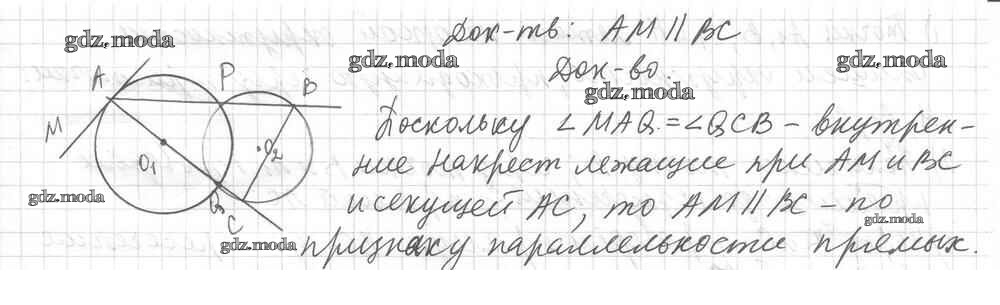 Док-ть: AM || BC
Док-во.
gdz.moda
gdz.moda
gdz.moda
gdz.moda
A
P
B
M
O₁
O₂
C
Поскольку ∠MAQ = ∠QCB – внутрен-
ние накрест лежащие при AM и BC
и секущей AC, то AM || BC – по
признаку параллельности прямых.
gdz.moda
gdz.moda
gdz.moda